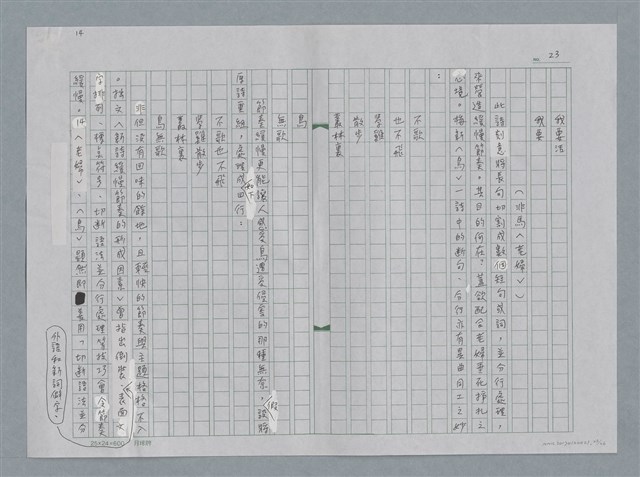 14
23
我要活
我要
(非馬〈老婦〉)
此詩刻意將長句切割成數個短句或詞，並分行處理，
來營造緩慢節奏。其目的何在？蓋欲配合老婦掙扎之
心境。梅新〈鳥〉一詩中的斷句、分行亦有異曲同工之妙
：
不歌
也不飛
學雞
散步
叢林裏
鳥
無歌
節奏緩慢更能讓人感受鳥遭受侵害的那種無奈，設將
原詩重組，處理成如下四行：
不歌也不飛
學雞散步
叢林裏
鳥無歌
非但沒有回味的餘地，且輕快的節奏與主題格格不入
。拙文〈新詩緩慢節奏的形成因素〉曾指出倒裝、表面文
字排列、標點符號、切斷語法並分行處理等技巧會令節奏
緩慢。14〈老婦〉、〈鳥〉顯然即表用「切斷語法並分
外語和新詞僻字、
25×24=600